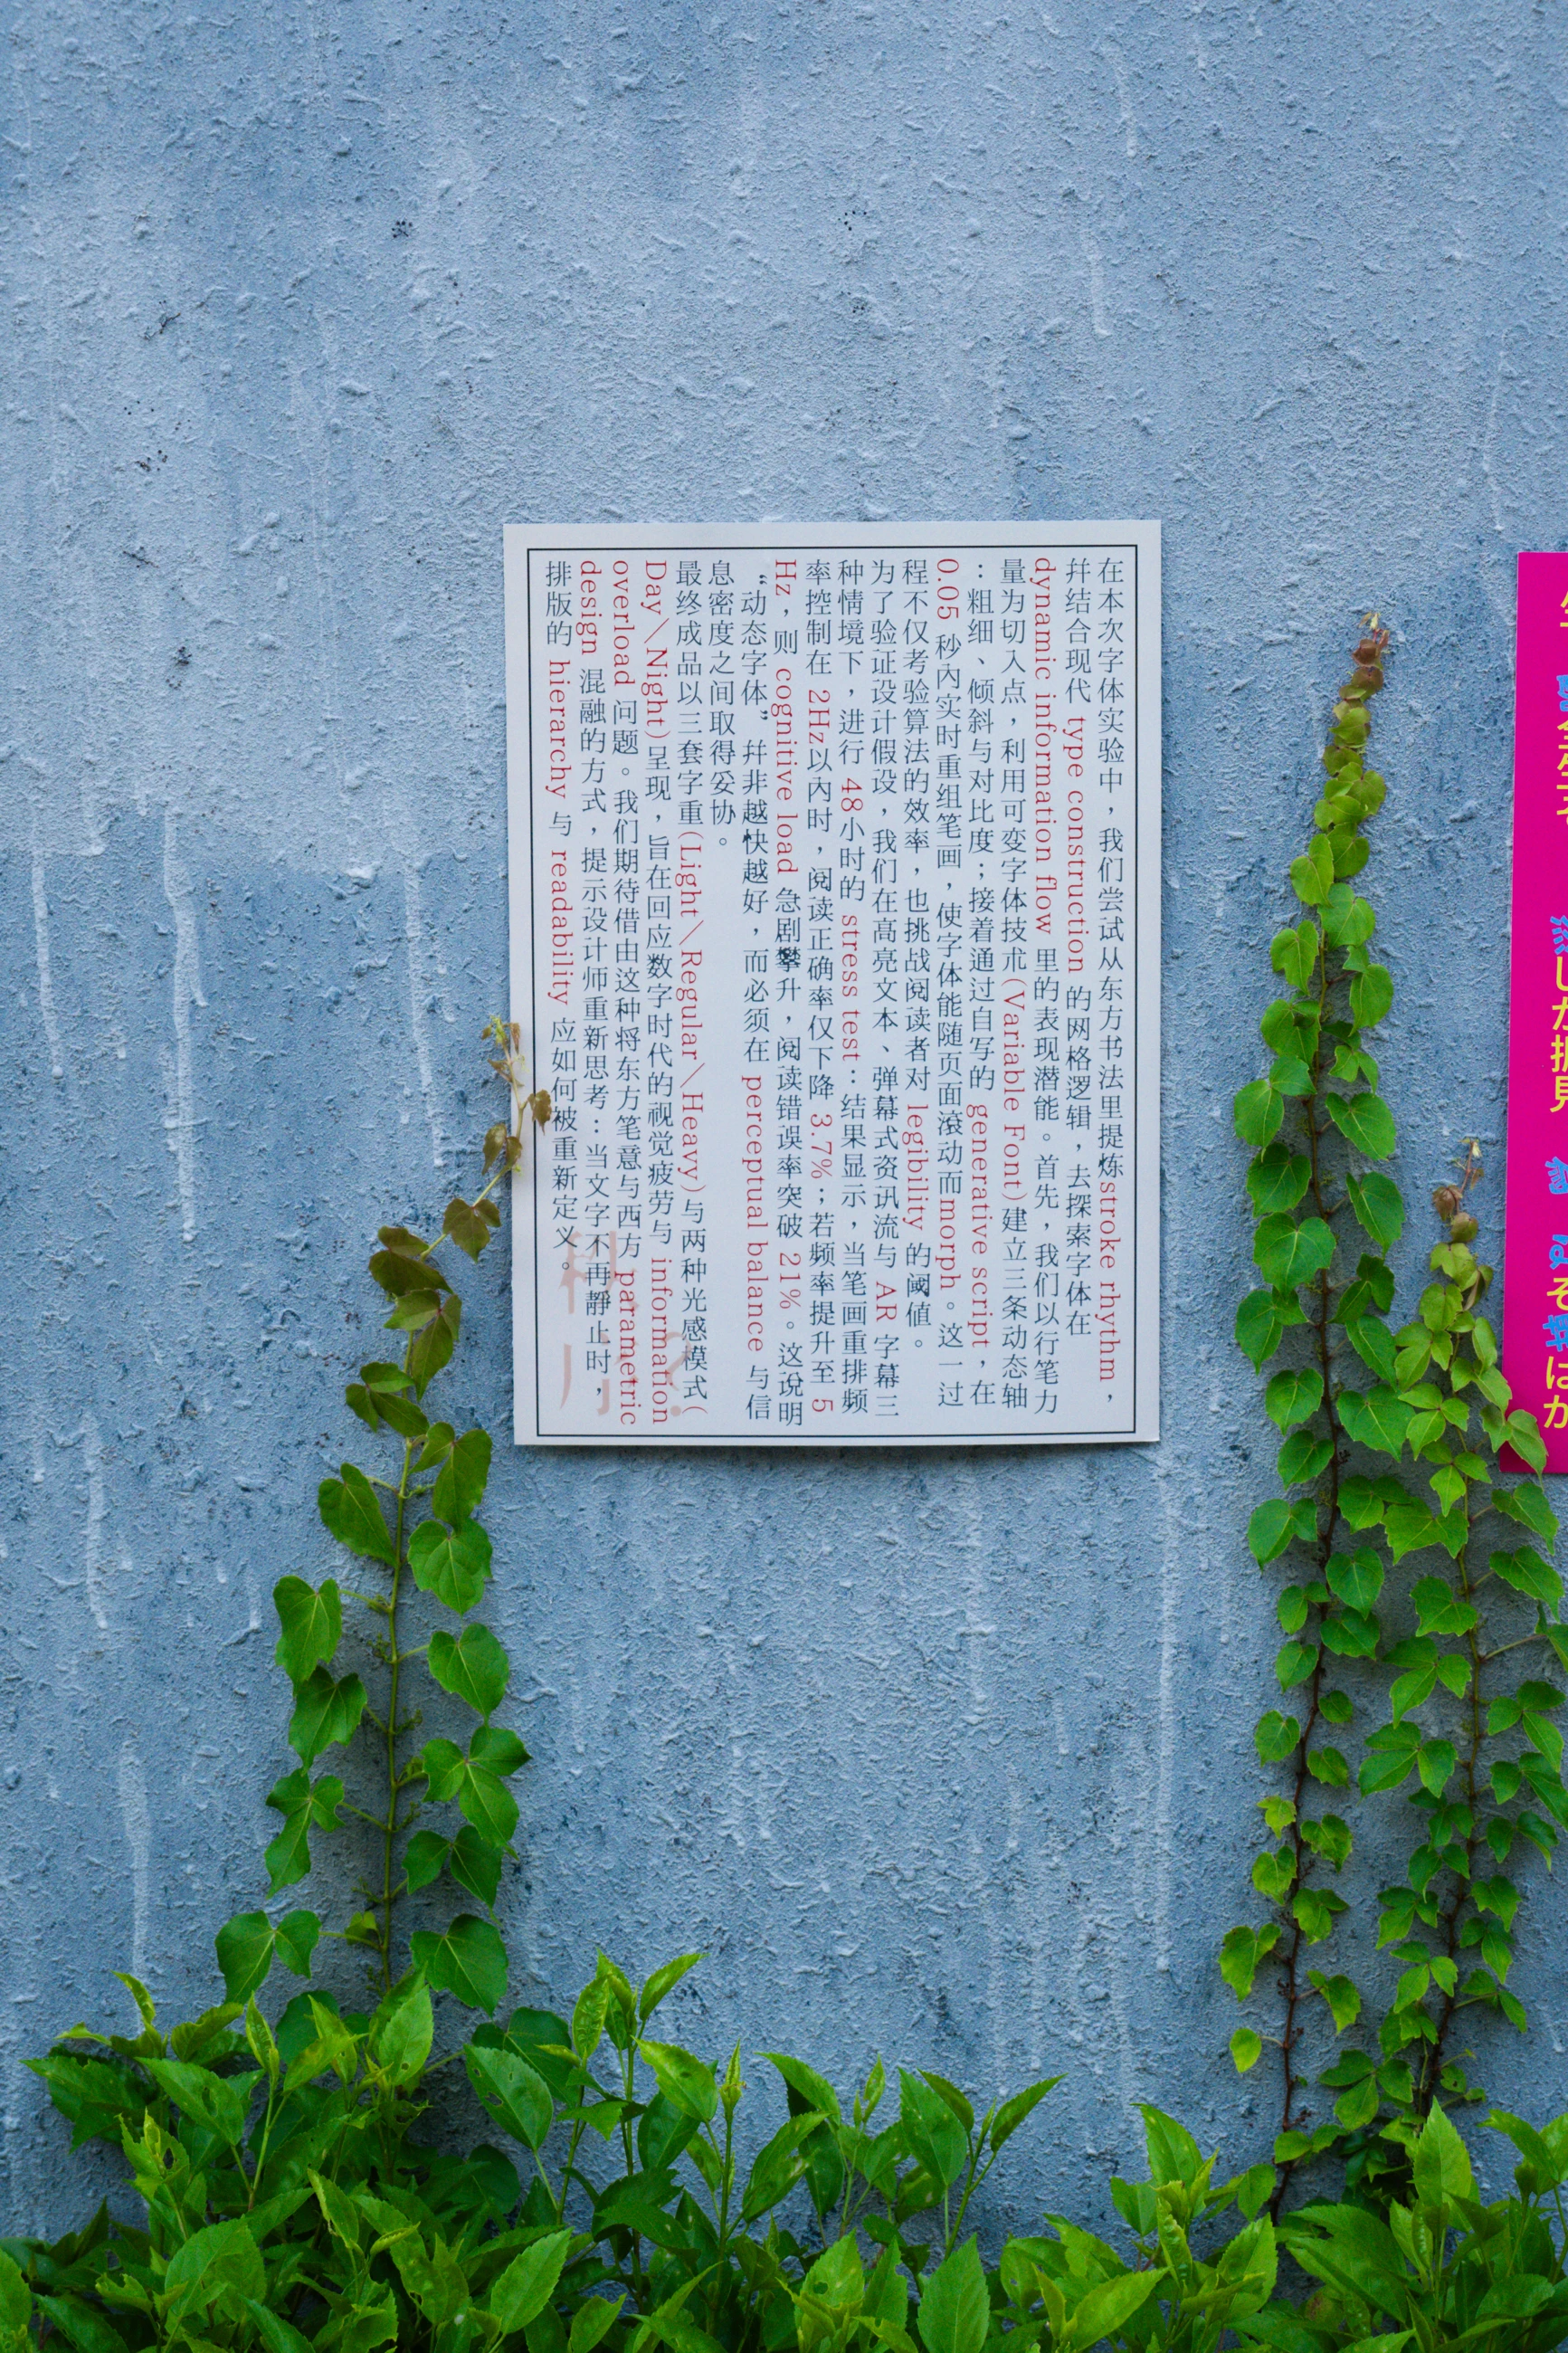 在本次字体实验中，我们尝试从东方书法里提炼stroke rhythm，
并结合现代 type construction 的网格逻辑，去探索字体在
dynamic information flow 里的表现潜能。首先，我们以行笔力
量为切入点，利用可变字体技术(Variable Font)建立三条动态轴
：粗细、倾斜与对比度；接着通过自写的 generative script，在
0.05 秒内实时重组笔画，使字体能随页面滚动而morph。这一过
程不仅考验算法的效率，也挑战阅读者对 legibility 的阈值。
为了验证设计假设，我们在高亮文本、弹幕式资讯流与 AR 字幕三
种情境下，进行 48小时的 stress test：结果显示，当笔画重排频
率控制在 2Hz以内时，阅读正确率仅下降 3.7%；若频率提升至 5
Hz，则 cognitive load 急剧攀升，阅读错误率突破 21%。这说明
“动态字体”并非越快越好，而必须在 perceptual balance 与信
息密度之间取得妥协。
最终成品以三套字重(Light／Regular／Heavy)与两种光感模式(
Day／Night)呈现，旨在回应数字时代的视觉疲劳与 information
overload 问题。我们期待借由这种将东方笔意与西方 parametric
design 混融的方式，提示设计师重新思考：当文字不再静止时，
排版的 hierarchy 与 readability 应如何被重新定义。